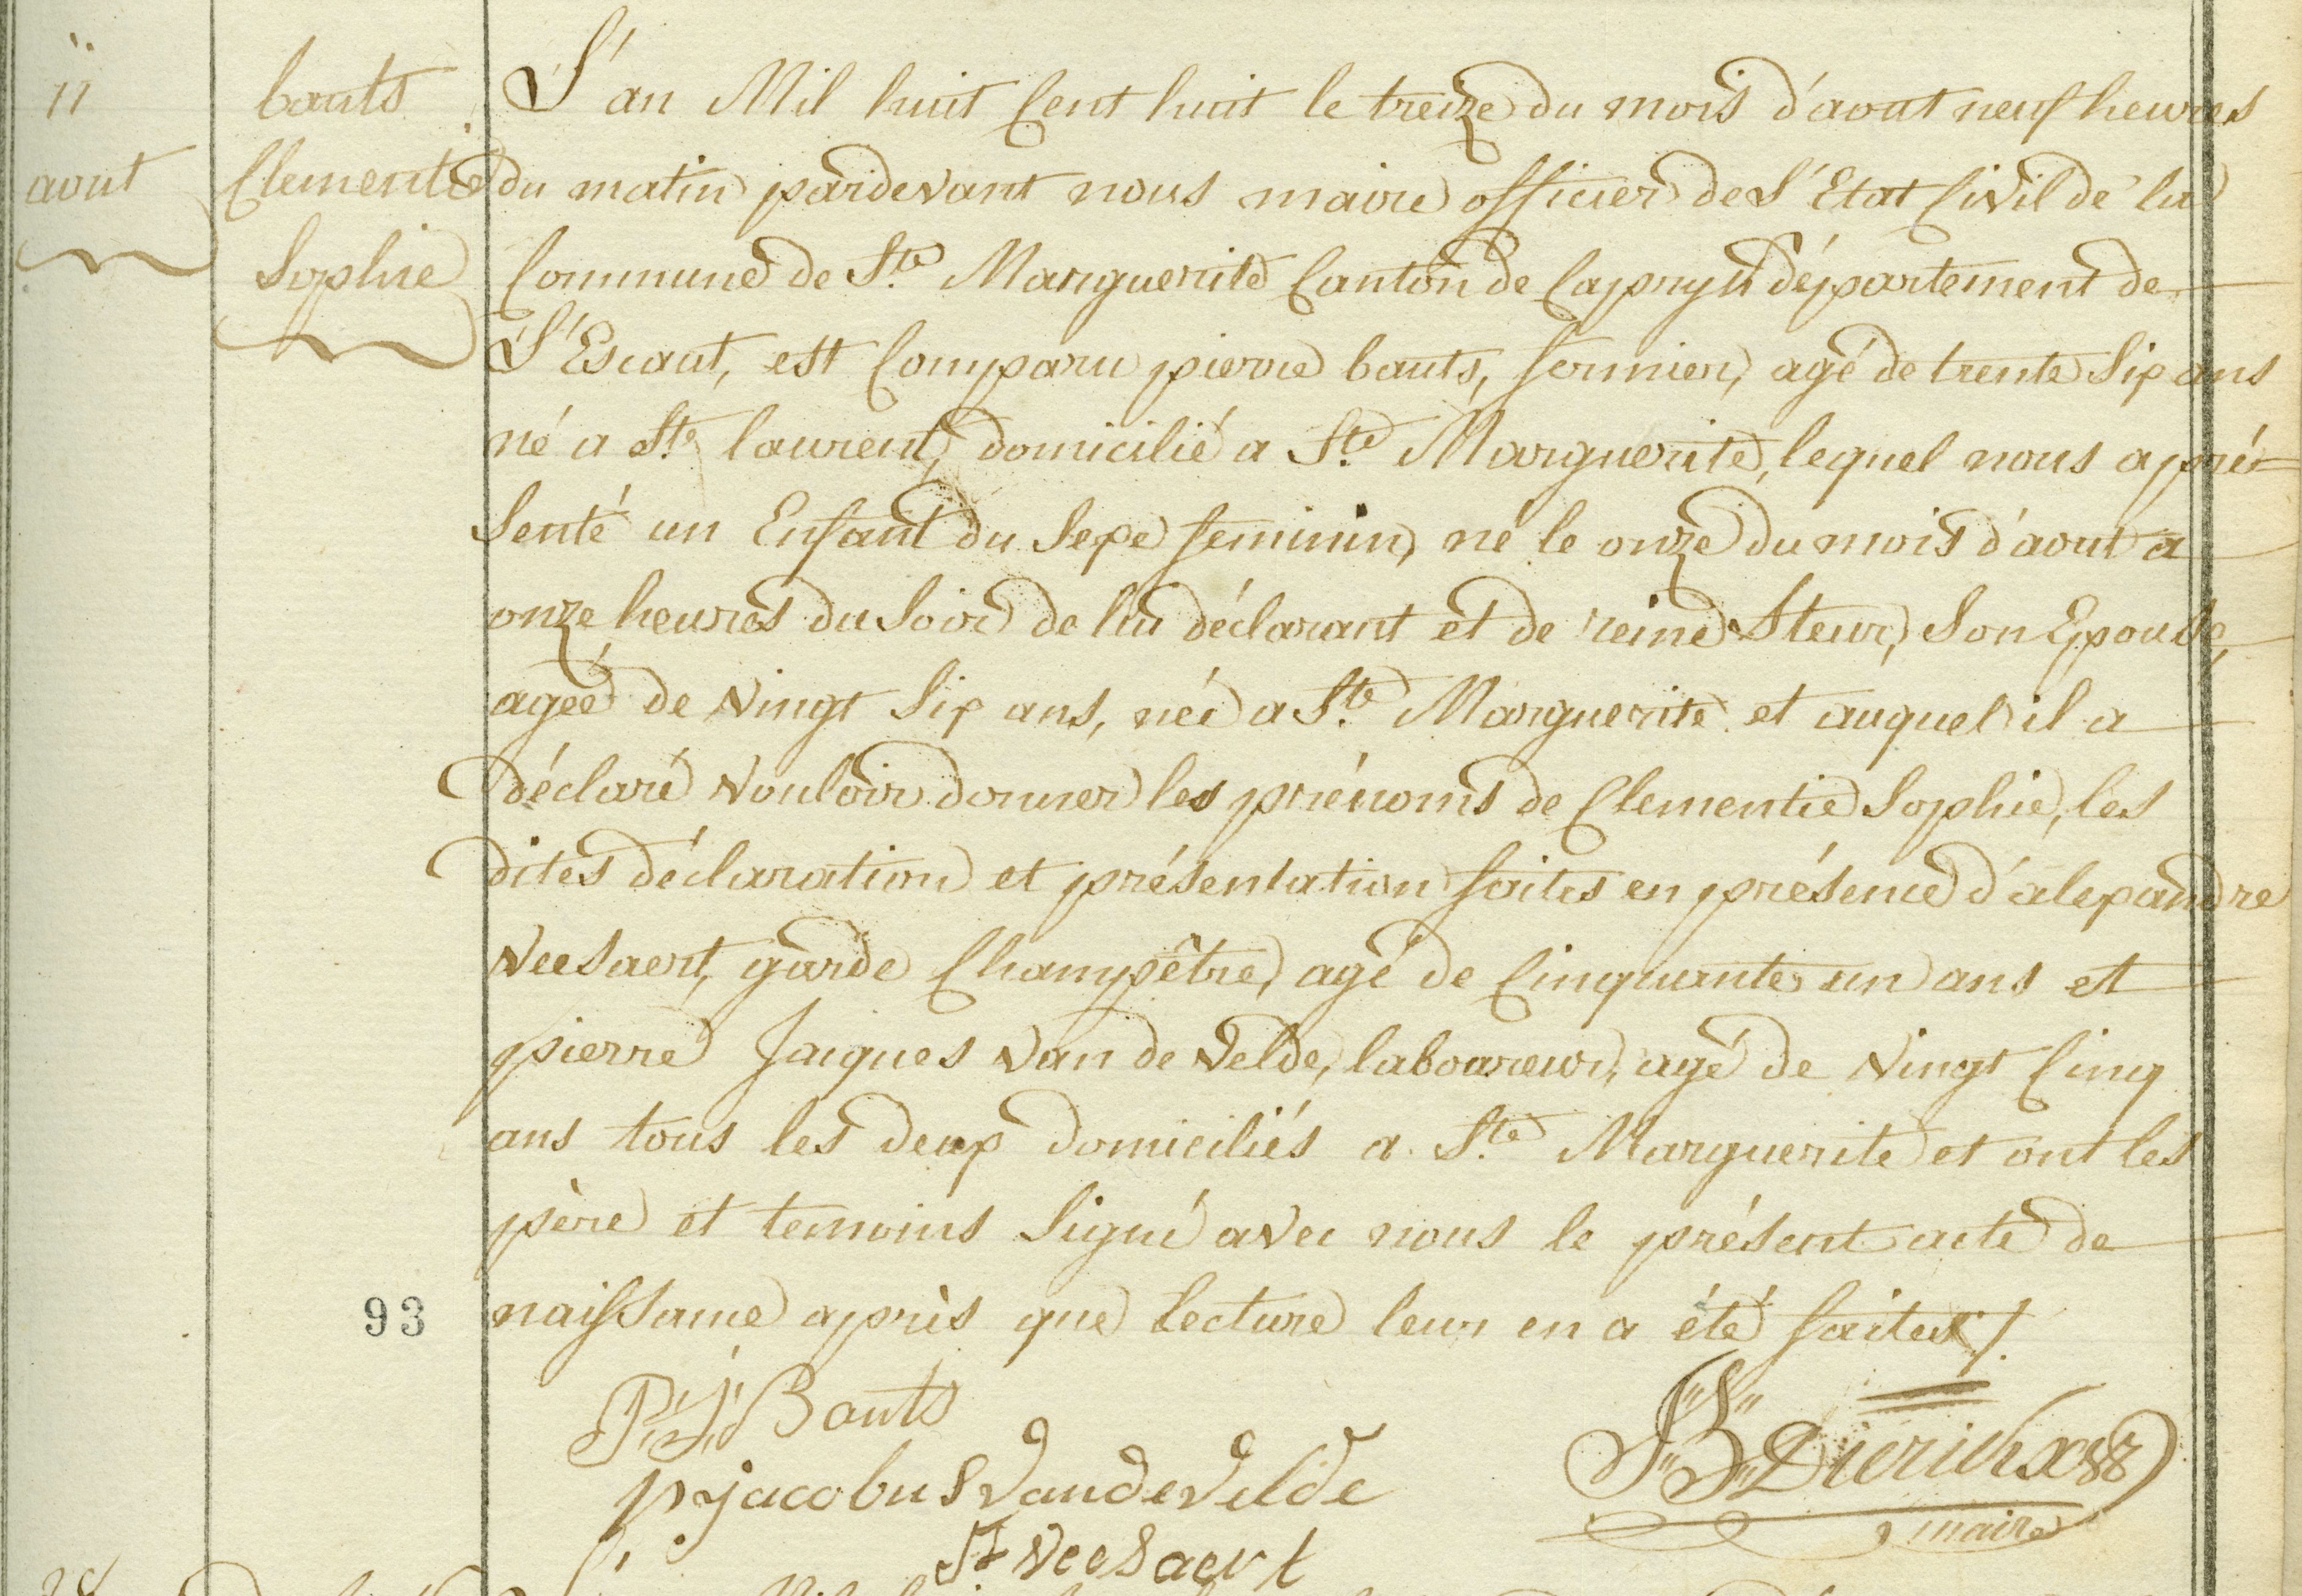 11
aout
bauts
Clementie
Sophie
L'an Mil huit Cent huit le treize du mois d'aout neuf heures
du matin pardevant nous maire officier de L'Etat Civil de la
Commune de Ste Marguerite Canton de Capryk département de
L'Escaut, est Comparu pierre bauts, fermier, agé de trente Six ans
né a St. laurent, domicilié a Ste Marguerite, lequel nous a pré=
Senté un Enfant du Sexe feminin, né le onze du mois d'aout a
onze heures du Soir de lui déclarant et de reine Steur, Son Epouse,
agéé de Vingt Six ans, née a Ste Marguerite et auquel il a
déclaré Vouloir donner les prénoms de Clementie Sophie, les
dites déclaration et présentation faites en présence d'alexandre
Veesaert, garde Champêtre, agé de Cinquante un ans et
pierre Jacques Van de Velde, laboureur, agé de Vingt Cinq
ans tous les deux domiciliés a Ste Marguerite et ont les
père et temoins Signé avec nous le présent acte de
naissance après que Lecture leur en a été faite ./.
93
P. J. Bauts
JB Dierickx
pjacobus Vande Velde
maire
Veesaert